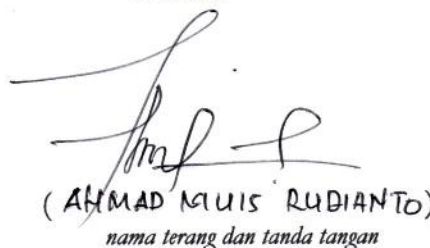 ( AHMAD MUIS RUDIANTO)
nama terang dan tanda tangan